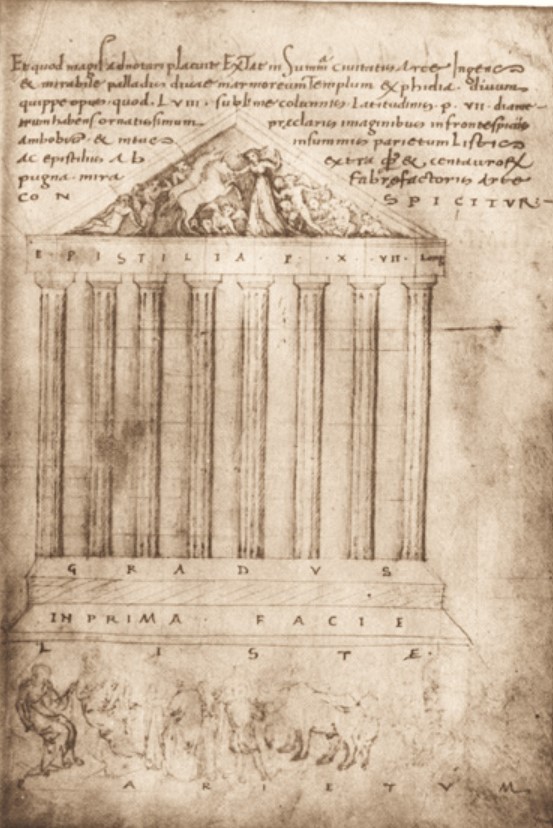 Et quod magis adnotari placuit Extat in Summa civitatis Arce Ingens
& mirabile palladis divae marmoreum Templum ex phidia divum
quippe opus quod LVIII sublime columnis Latitudinis p. VII diame
trum habens ornatissimum praeclaris imaginibus in frontespiciis
ambobus & intus insummis parietum Listis
ac epistiliis Ab extra & centauror
pugna mira fabrefactoris Arte
CON SPICITVR
EPISTILIA P. X. VII. Long
GRADVS
IN PRIMA FACIE
LISTE
PARIETVM